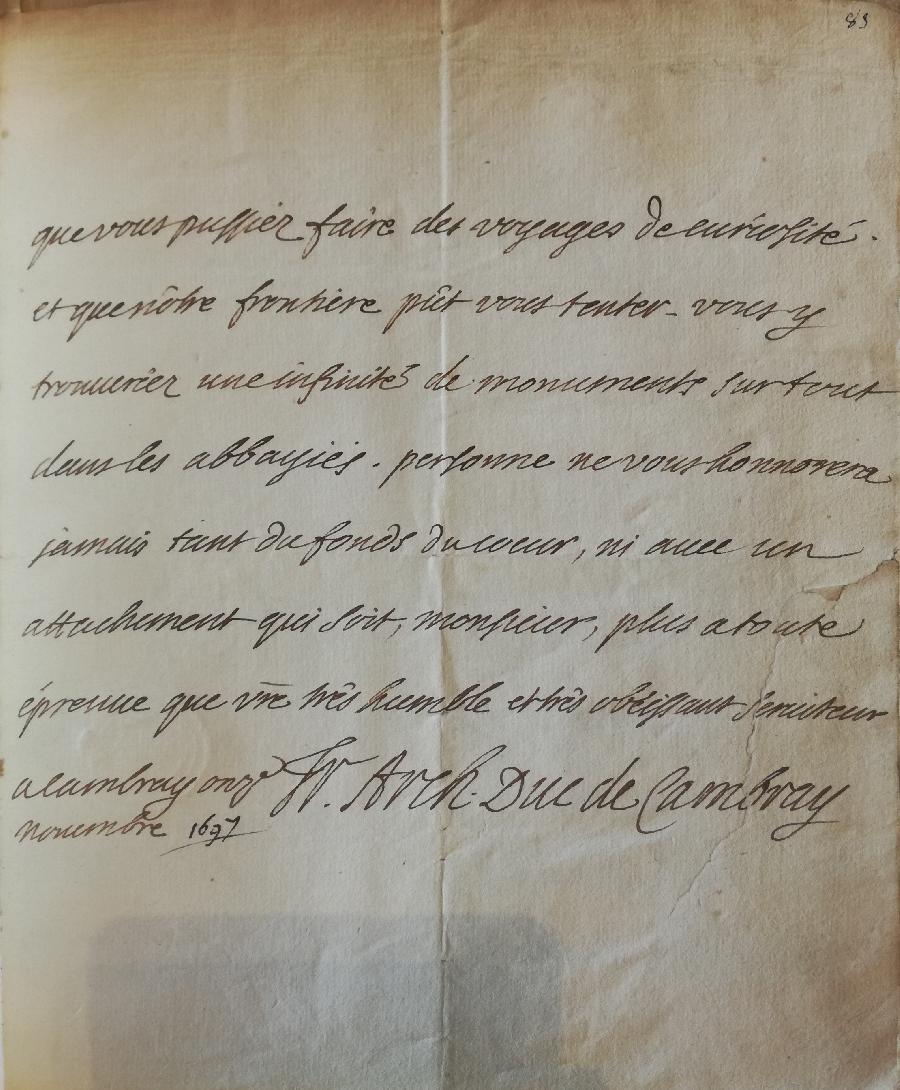 89
que vous pussiez faire des voyages de curiosité.
et que nôtre frontière pût vous tenter. vous y
trouveriez une infinité de monuments sur tout
dans les abbayies. personne ne vous honnorera
jamais tant du fonds du coeur, ni avec un
attachement qui soit, monsieur, plus a toute
épreuve que vr̃e très humble et très obéissant serviteur
a cambray onze Fr. Arch. Duc de Cambray
novembre 1697